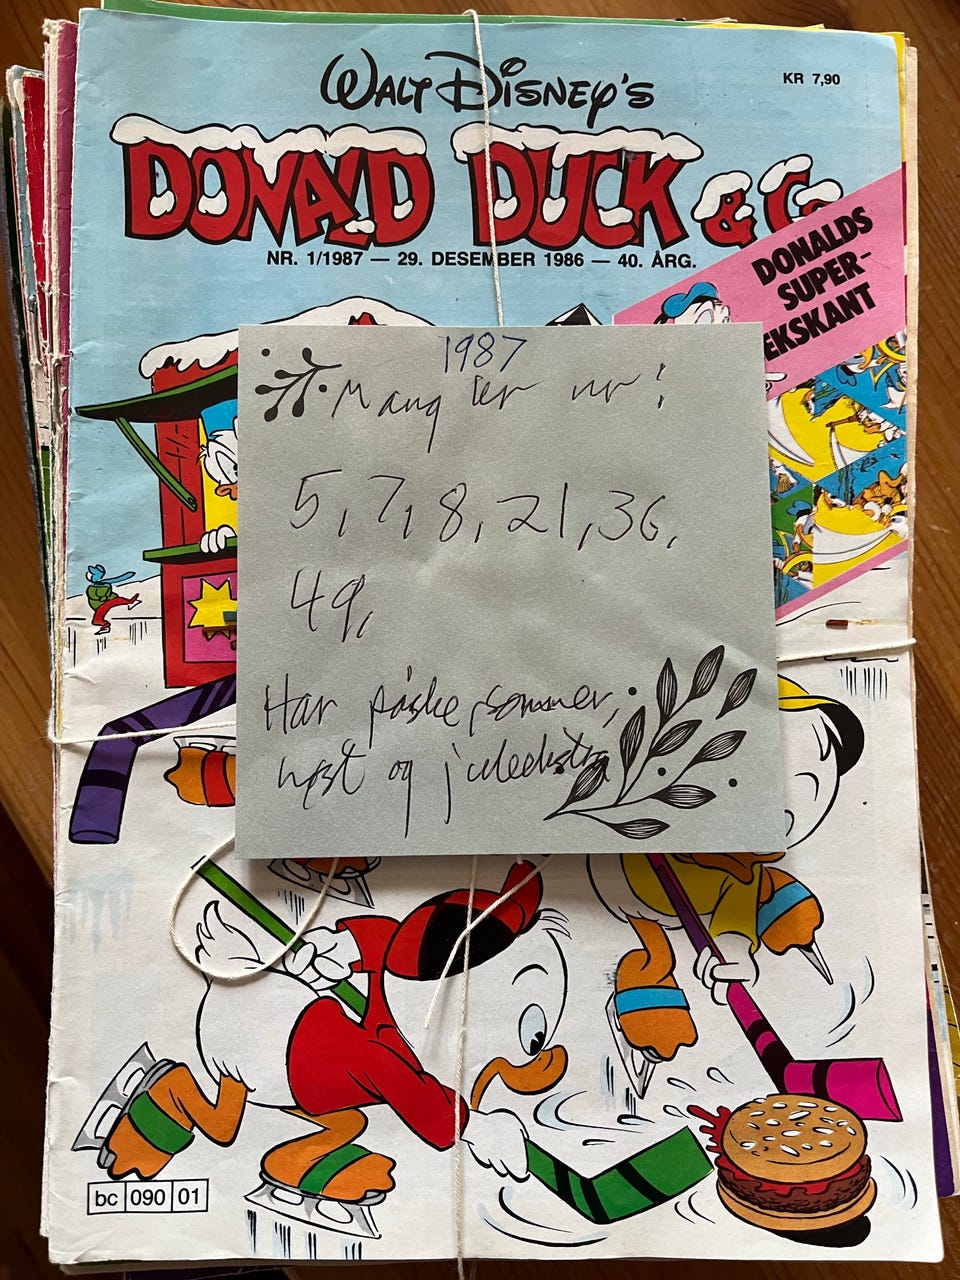 WALT DISNEY'S
KR 7,90
DONALD DUCK & Co
NR. 1/1987 — 29. DESEMBER 1986 — 40. ÅRG.
DONALDS
SUPER-
EKSKANT
1987
Mangler nr:
5, 7, 8, 21, 36,
49,
Har påske, sommer,
høst og juleekstra
bc 090 01